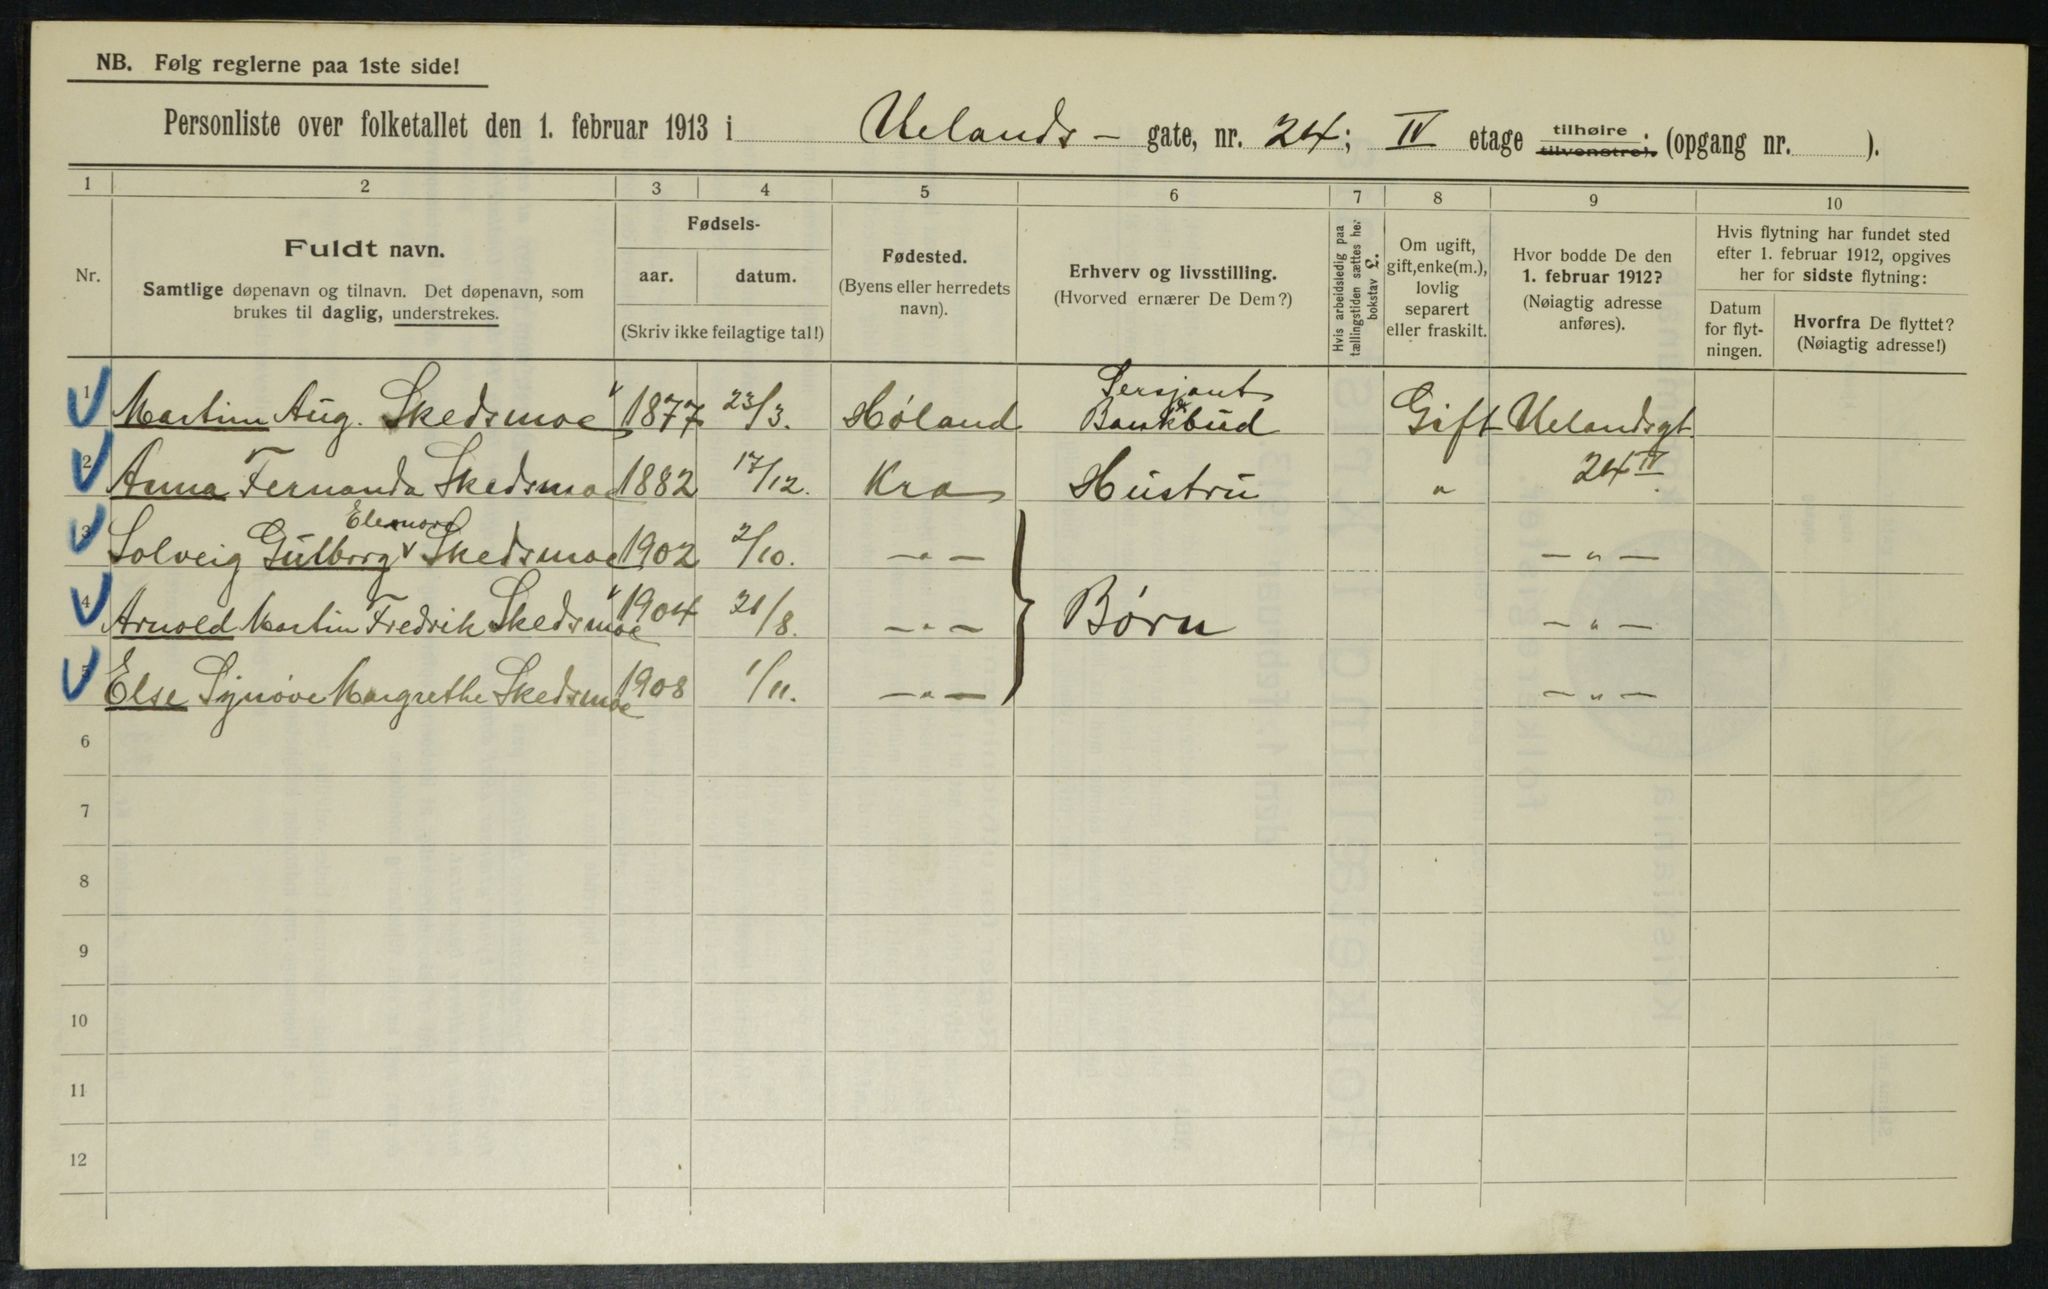 NB. Følg reglerne paa 1ste side!
Personliste over folketallet den 1. februar 1913 i Uelands - gate, nr. 24; IV etage tilhøire tilvenstre); (opgang nr. ).
1 2 3 4 5 6 7 8 9 10
Nr.
Fuldt navn.
Samtlige døpenavn og tilnavn. Det døpenavn, som
brukes til daglig, understrekes.
Fødsels-
aar. datum.
(Skriv ikke feilagtige tal!)
Fødested.
(Byens eller herredets
navn).
Erhverv og livsstilling.
(Hvorved ernærer De Dem?)
Hvis arbeidsledig paa
tællingstiden sættes her
bokstav £.
Om ugift,
gift, enke(m.),
lovlig
separert
eller fraskilt.
Hvor bodde De den
1. februar 1912?
(Nøiagtig adresse
anføres).
Hvis flytning har fundet sted
efter 1. februar 1912, opgives
her for sidste flytning:
Datum
for flyt-
ningen.
Hvorfra De flyttet?
(Nøiagtig adresse!)
1 Martin Aug. Skedsmoe 1877 23/3. Høland Sersjant & Bankbud Gift Uelandsgt
2 Anna Fernanda Skedsmoe 1882 17/12. Kra Hustru " 24 IV
3 Solveig Gulborg Elenora Skedsmoe 1902 2/10. — " — — " —
4 Arnold Martin Fredrik Skedsmoe 1904 21/8. — " — Børn — " —
5 Else Synøve Margrethe Skedsmoe 1908 1/11. — " — — " —
6
7
8
9
10
11
12